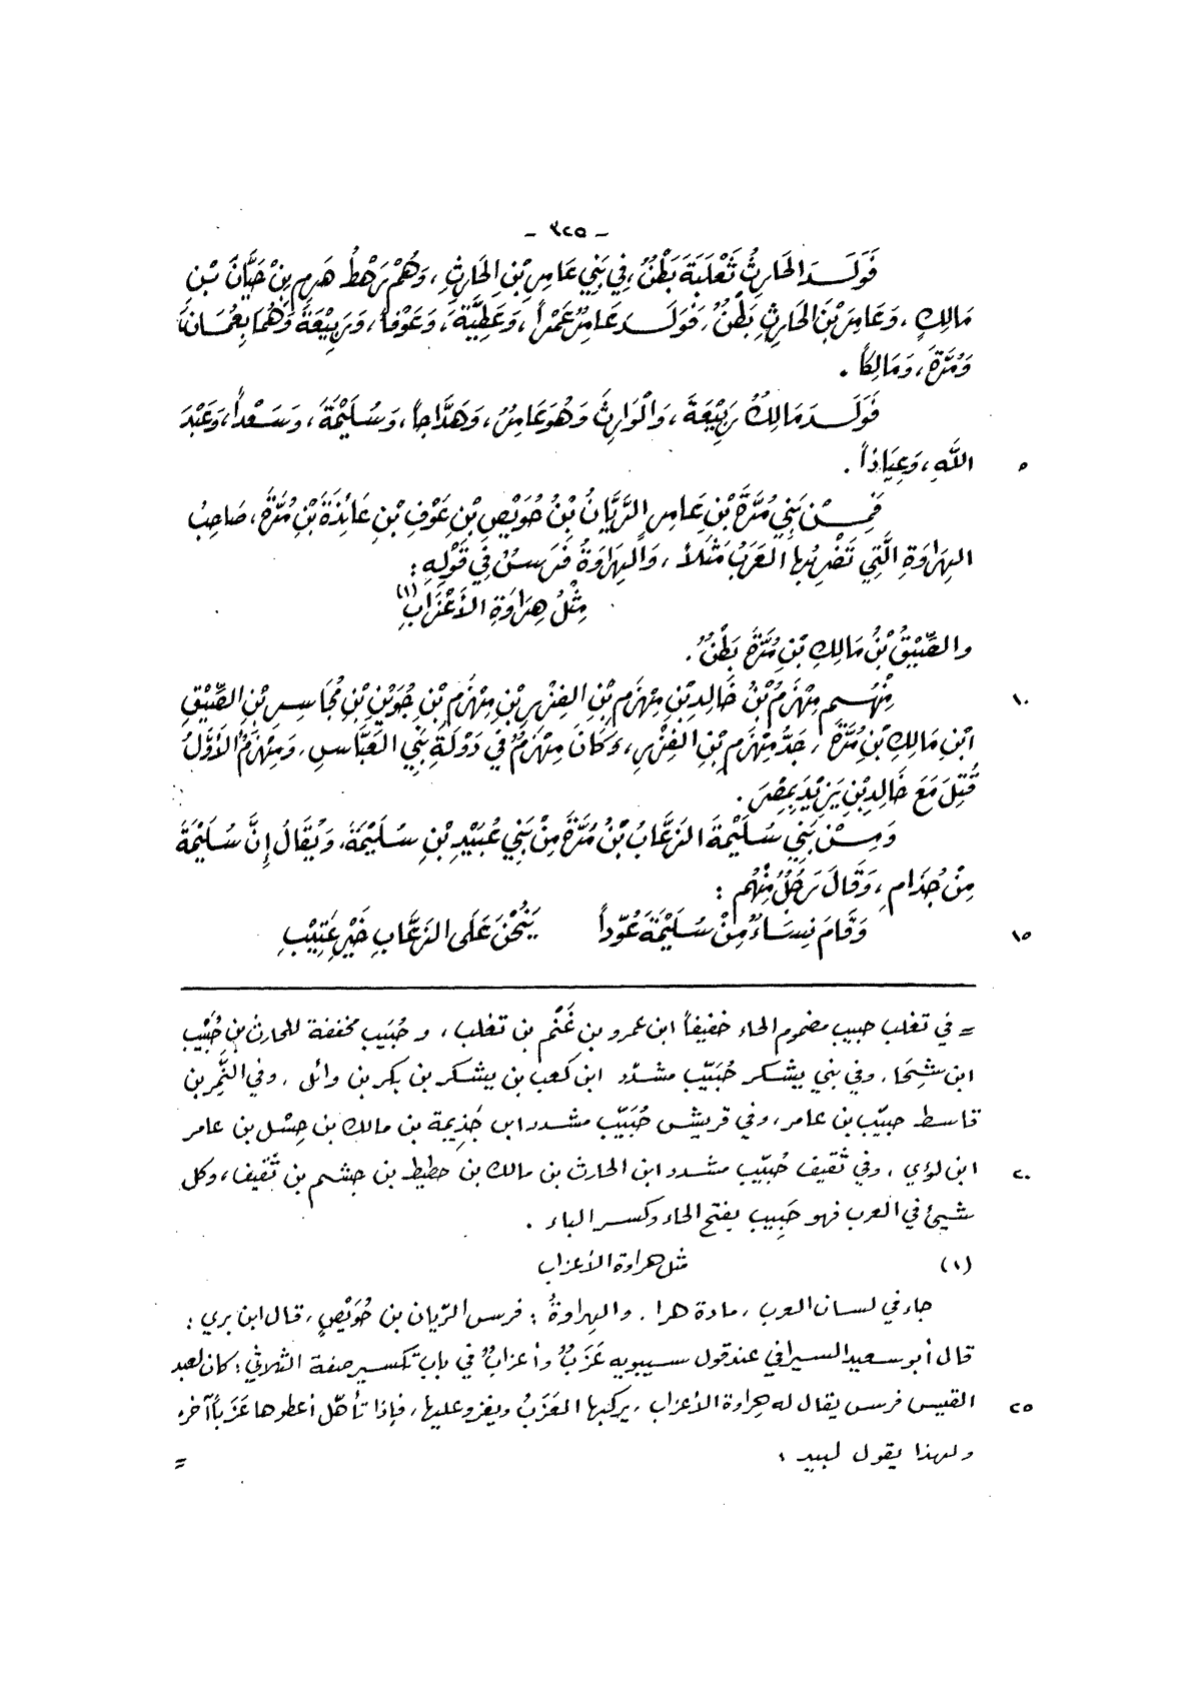 - ٣٢٥ -
فَوَلَدَ الحَارِثُ ثَعْلَبَةَ بَطْنٌ، فِي بَنِي عَامِرِ بْنِ الحَارِثِ، وَهُمْ رَهْطُ هَرِمِ بْنِ حَيَّانَ بْنِ
مَالِكٍ، وَعَامِرَ بْنَ الحَارِثِ بَطْنٌ، فَوَلَدَ عَامِرٌ عَمْراً، وَعَطِيَّةَ، وَعَوْفاً، وَرَبِيْعَةَ وَهُمَا بِعُمَانَ،
وَمُرَّةَ، وَمَالِكاً.
فَوَلَدَ مَالِكٌ رَبِيْعَةَ، وَالْوَارِثَ وَهُوَ عَامِرٌ، وَهَدَّاجاً، وَسُلَيْمَةَ، وَسَعْداً، وَعَبْدَ
اللَّهِ، وَعِيَاذاً. ٥
فَمِنْ بَنِي مُرَّةَ بْنِ عَامِرٍ الرَّيَّانُ بْنُ حُوَيْصِ بْنِ عَوْفِ بْنِ عَائِذَةَ بْنِ مُرَّةَ، صَاحِبُ
الهِرَاوَةِ الَّتِي تَضْرِبُها العَرَبُ مَثَلاً، وَالهِرَاوَةُ فَرَسٌ فِي قَوْلِهِ:
مِثْلُ هِرَاوَةِ الأَعْزَابِ (١)
والصِّيْقُ بْنُ مَالِكِ بْنِ مُرَّةَ بَطْنٌ.
مِنْهُم مِهْزَمُ بْنُ خَالِدِ بْنِ مِهْزَمِ بْنِ الفِزْرِ بْنِ مِهْزَمِ بْنِ جُوَيْنِ بْنِ مُجَاسِرِ بْنِ الصِّيْقِ ١٠
ابْنِ مَالِكِ بْنِ مُرَّةَ، جَدُّ مِهْزَمِ بْنِ الفِزْرِ، وَكَانَ مِهْزَمٌ فِي دَوْلَةِ بَنِي العَبَّاسِ، وَمِهْزَمٌ الأَوَّلُ
قُتِلَ مَعَ خَالِدِ بْنِ يَزِيْدَ بِمِصْرَ.
وَمِنْ بَنِي سُلَيْمَةَ الزَعَّابُ بْنُ مُرَّةَ مِنْ بَنِي عُبَيْدِ بْنِ سُلَيْمَةَ، وَيُقَالُ إِنَّ سُلَيْمَةَ
مِنْ جُذَامٍ، وَقَالَ رَجُلٌ مِنْهُم:
وَقَامَ نِسَاءٌ مِنْ سُلَيْمَةَ عُوَّداً يَنُحْنَ عَلَى الزَعَّابِ خَيْرِ عَتِيْبِ ١٥
= في تغلب حبيب مضموم الحاء خفيفاً ابن عمرو بن غَنْم بن تغلب، و حُبَيب مخففة للحارث بن حُبَيْب
ابن شِحَا، وفي بني يشكر حُبَيّب مشدّد ابن كعب بن يشكر بن بكر بن وائل، وفي النَّمِر بن
قاسط حبيّب بن عامر، وفي قريش حُبَيّب مشدد ابن جَذِيمة بن مالك بن حِسْل بن عامر
ابن لؤي، وفي ثقيف حُبَيّب مشدد ابن الحارث بن مالك بن حطيط بن جشم بن ثَقيف، وكل ٢٠
شيئ في العرب فهو حَبِيب بفتح الحاء وكسر الباء.
(١) مثل هراوة الأعزاب
جاء في لسان العرب، مادة هرا. والهِراوةُ: فرس الرّيان بن حُوَيْصٍ، قال ابن بري:
قال أبو سعيد السيرافي عند قول سيبويه عَزَبٌ وأعزابٌ في باب تكسير صفة الثلاثي: كان لعبد
القيس فرس يقال له هِراوة الأعزاب، يركبها العَزَبُ ويغزو عليها، فإذا تأهّل أعطوها عَزَباً آخر، ٢٥
ولهذا يقول لبيد: =